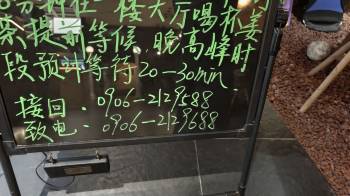 分钟在一楼大厅喝杯姜
茶提前等候,晚高峰时
段预计等待20-30min.
接回:0906-2129588
致电:0906-2129688